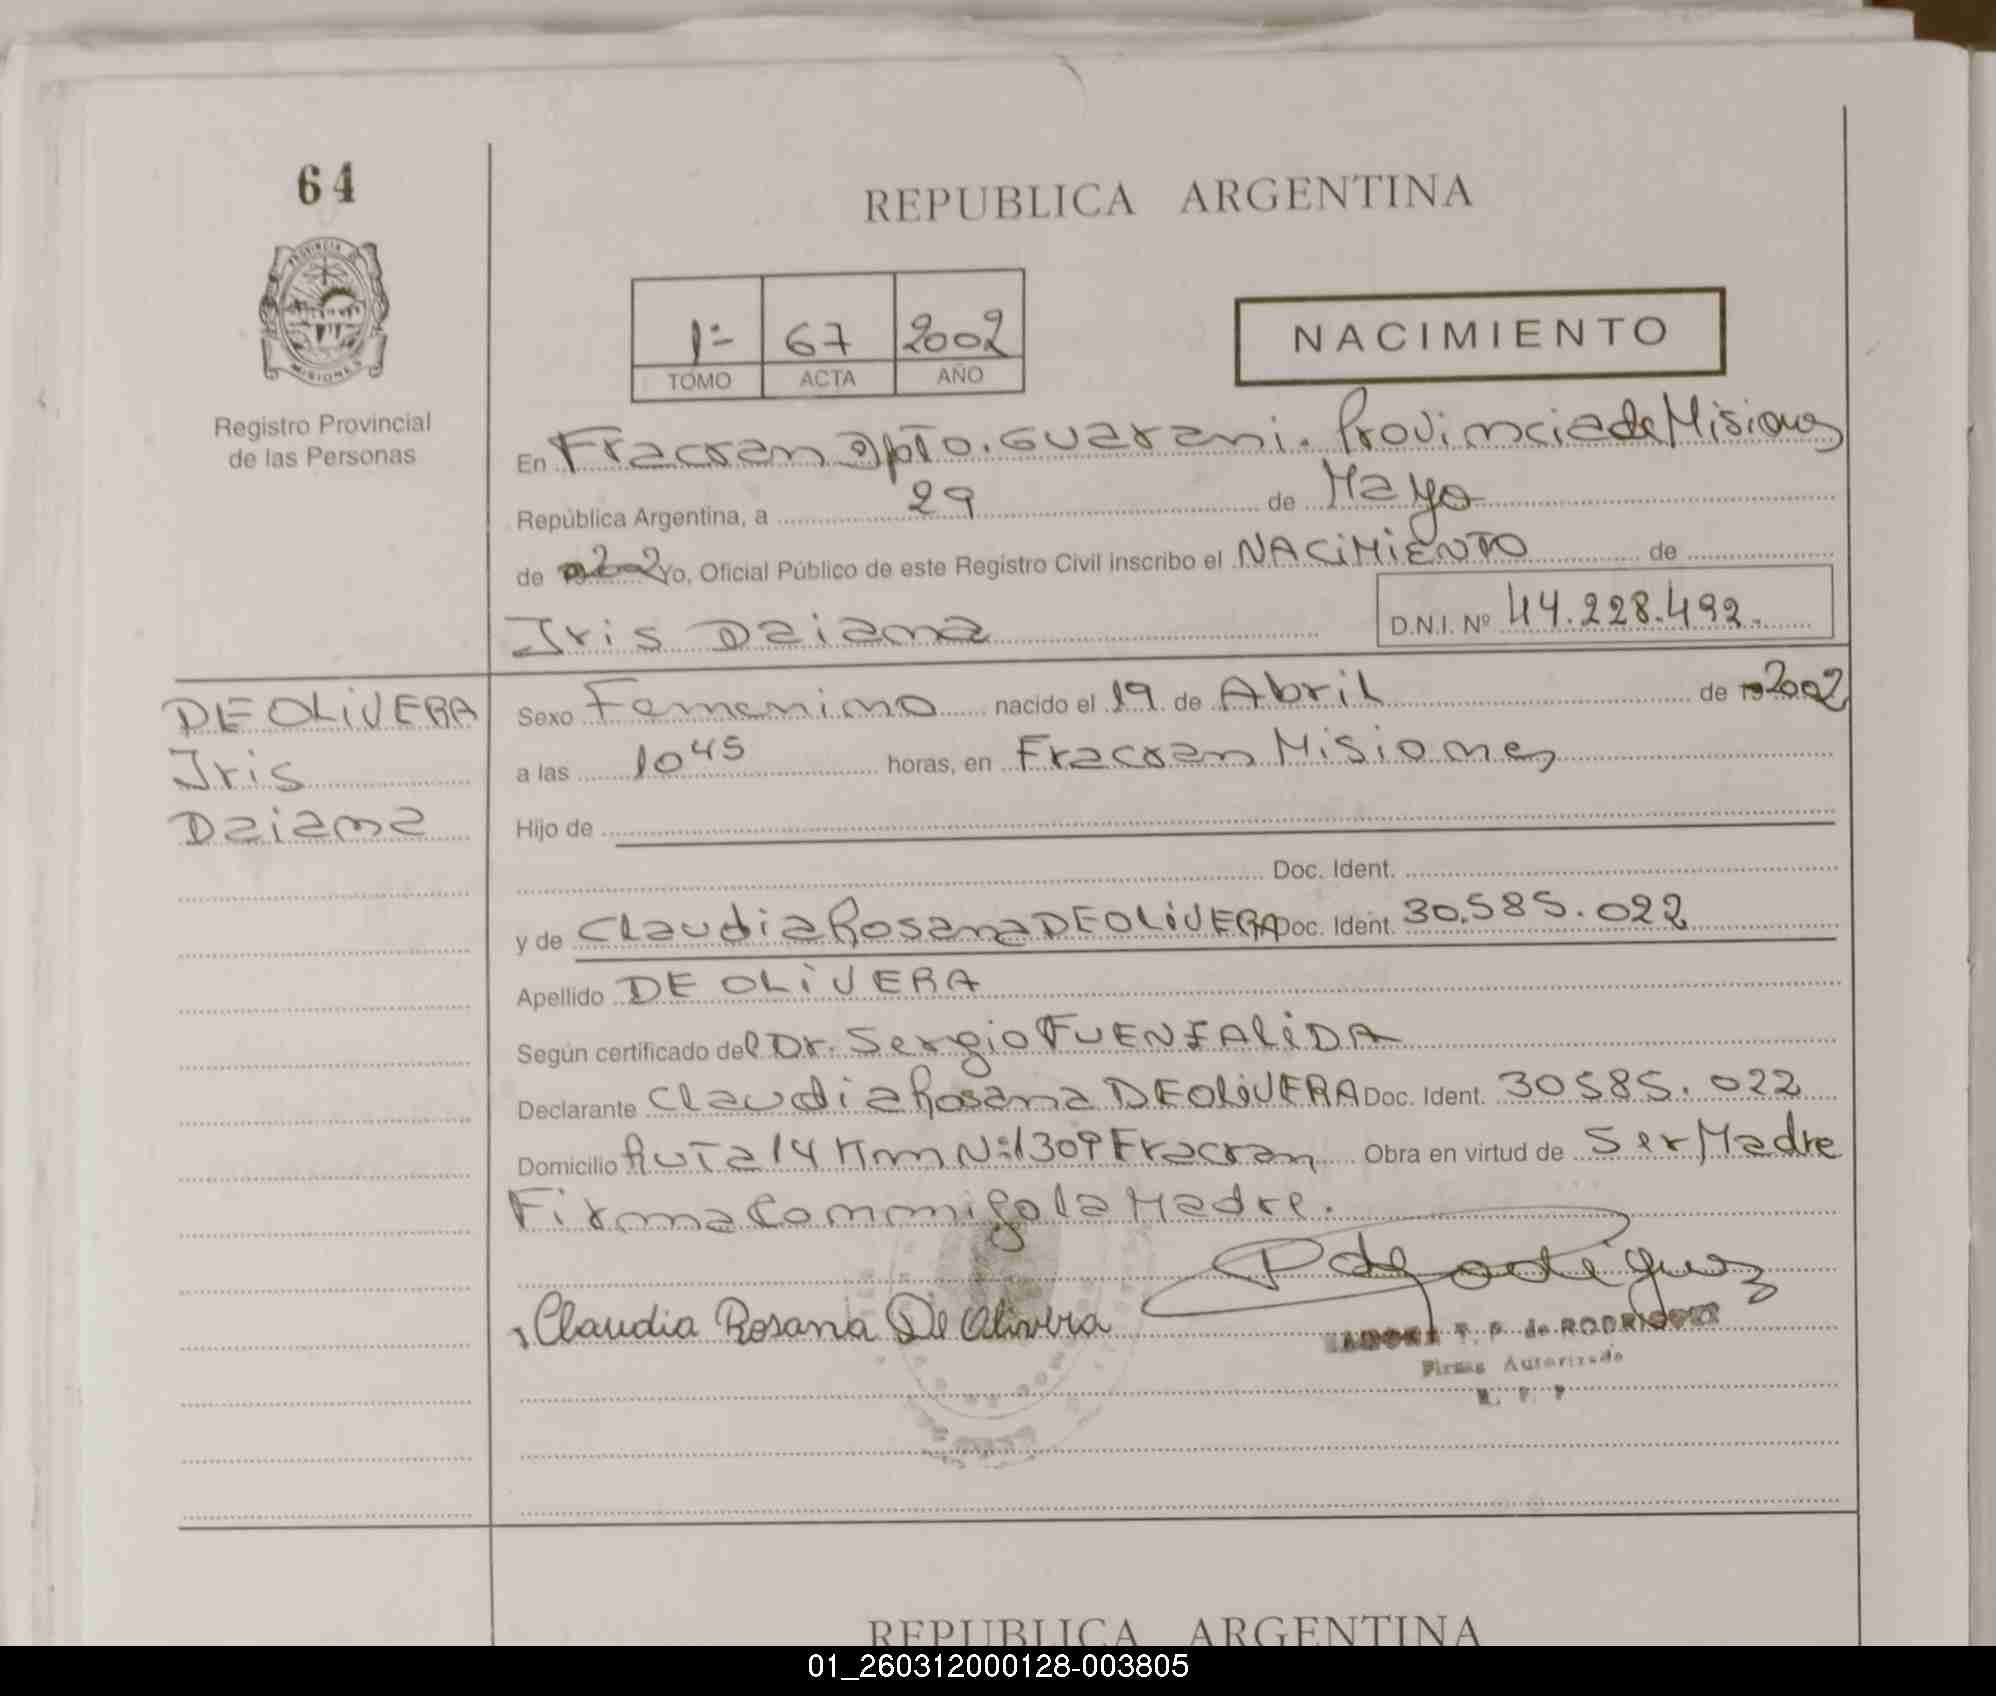 64
REPUBLICA ARGENTINA
PROVINCIA DE
MISIONES
Registro Provincial
de las Personas
1º 67 2002
TOMO ACTA AÑO
NACIMIENTO
En Fracran Dpto. Guarani. Provincia de Misiones
República Argentina, a 29 de Mayo
de 2002 Yo, Oficial Público de este Registro Civil inscribo el NACIMIENTO de
Iris Daiana D.N.I. Nº 44.228.492.
DE OLIVERA
Iris
Daiana
Sexo Femenino nacido el 19 de Abril de 2002
a las 10 45 horas, en Fracran Misiones
Hijo de
Doc. Ident.
y de Claudia Rosana DE OLIVERA Doc. Ident. 30.585.022
Apellido DE OLIVERA
Según certificado del Dr. Sergio FUENZALIDA
Declarante Claudia Rosana DE OLIVERA Doc. Ident. 30585.022
Domicilio Ruta 14 Km Nº 1309 Fracran Obra en virtud de Ser Madre
Firma Conmigo la Madre.
Claudia Rosana De Olivera
T. P. de RODRIGUEZ
Firma Autorizada
R. P. P
REPUBLICA ARGENTINA
01_260312000128-003805